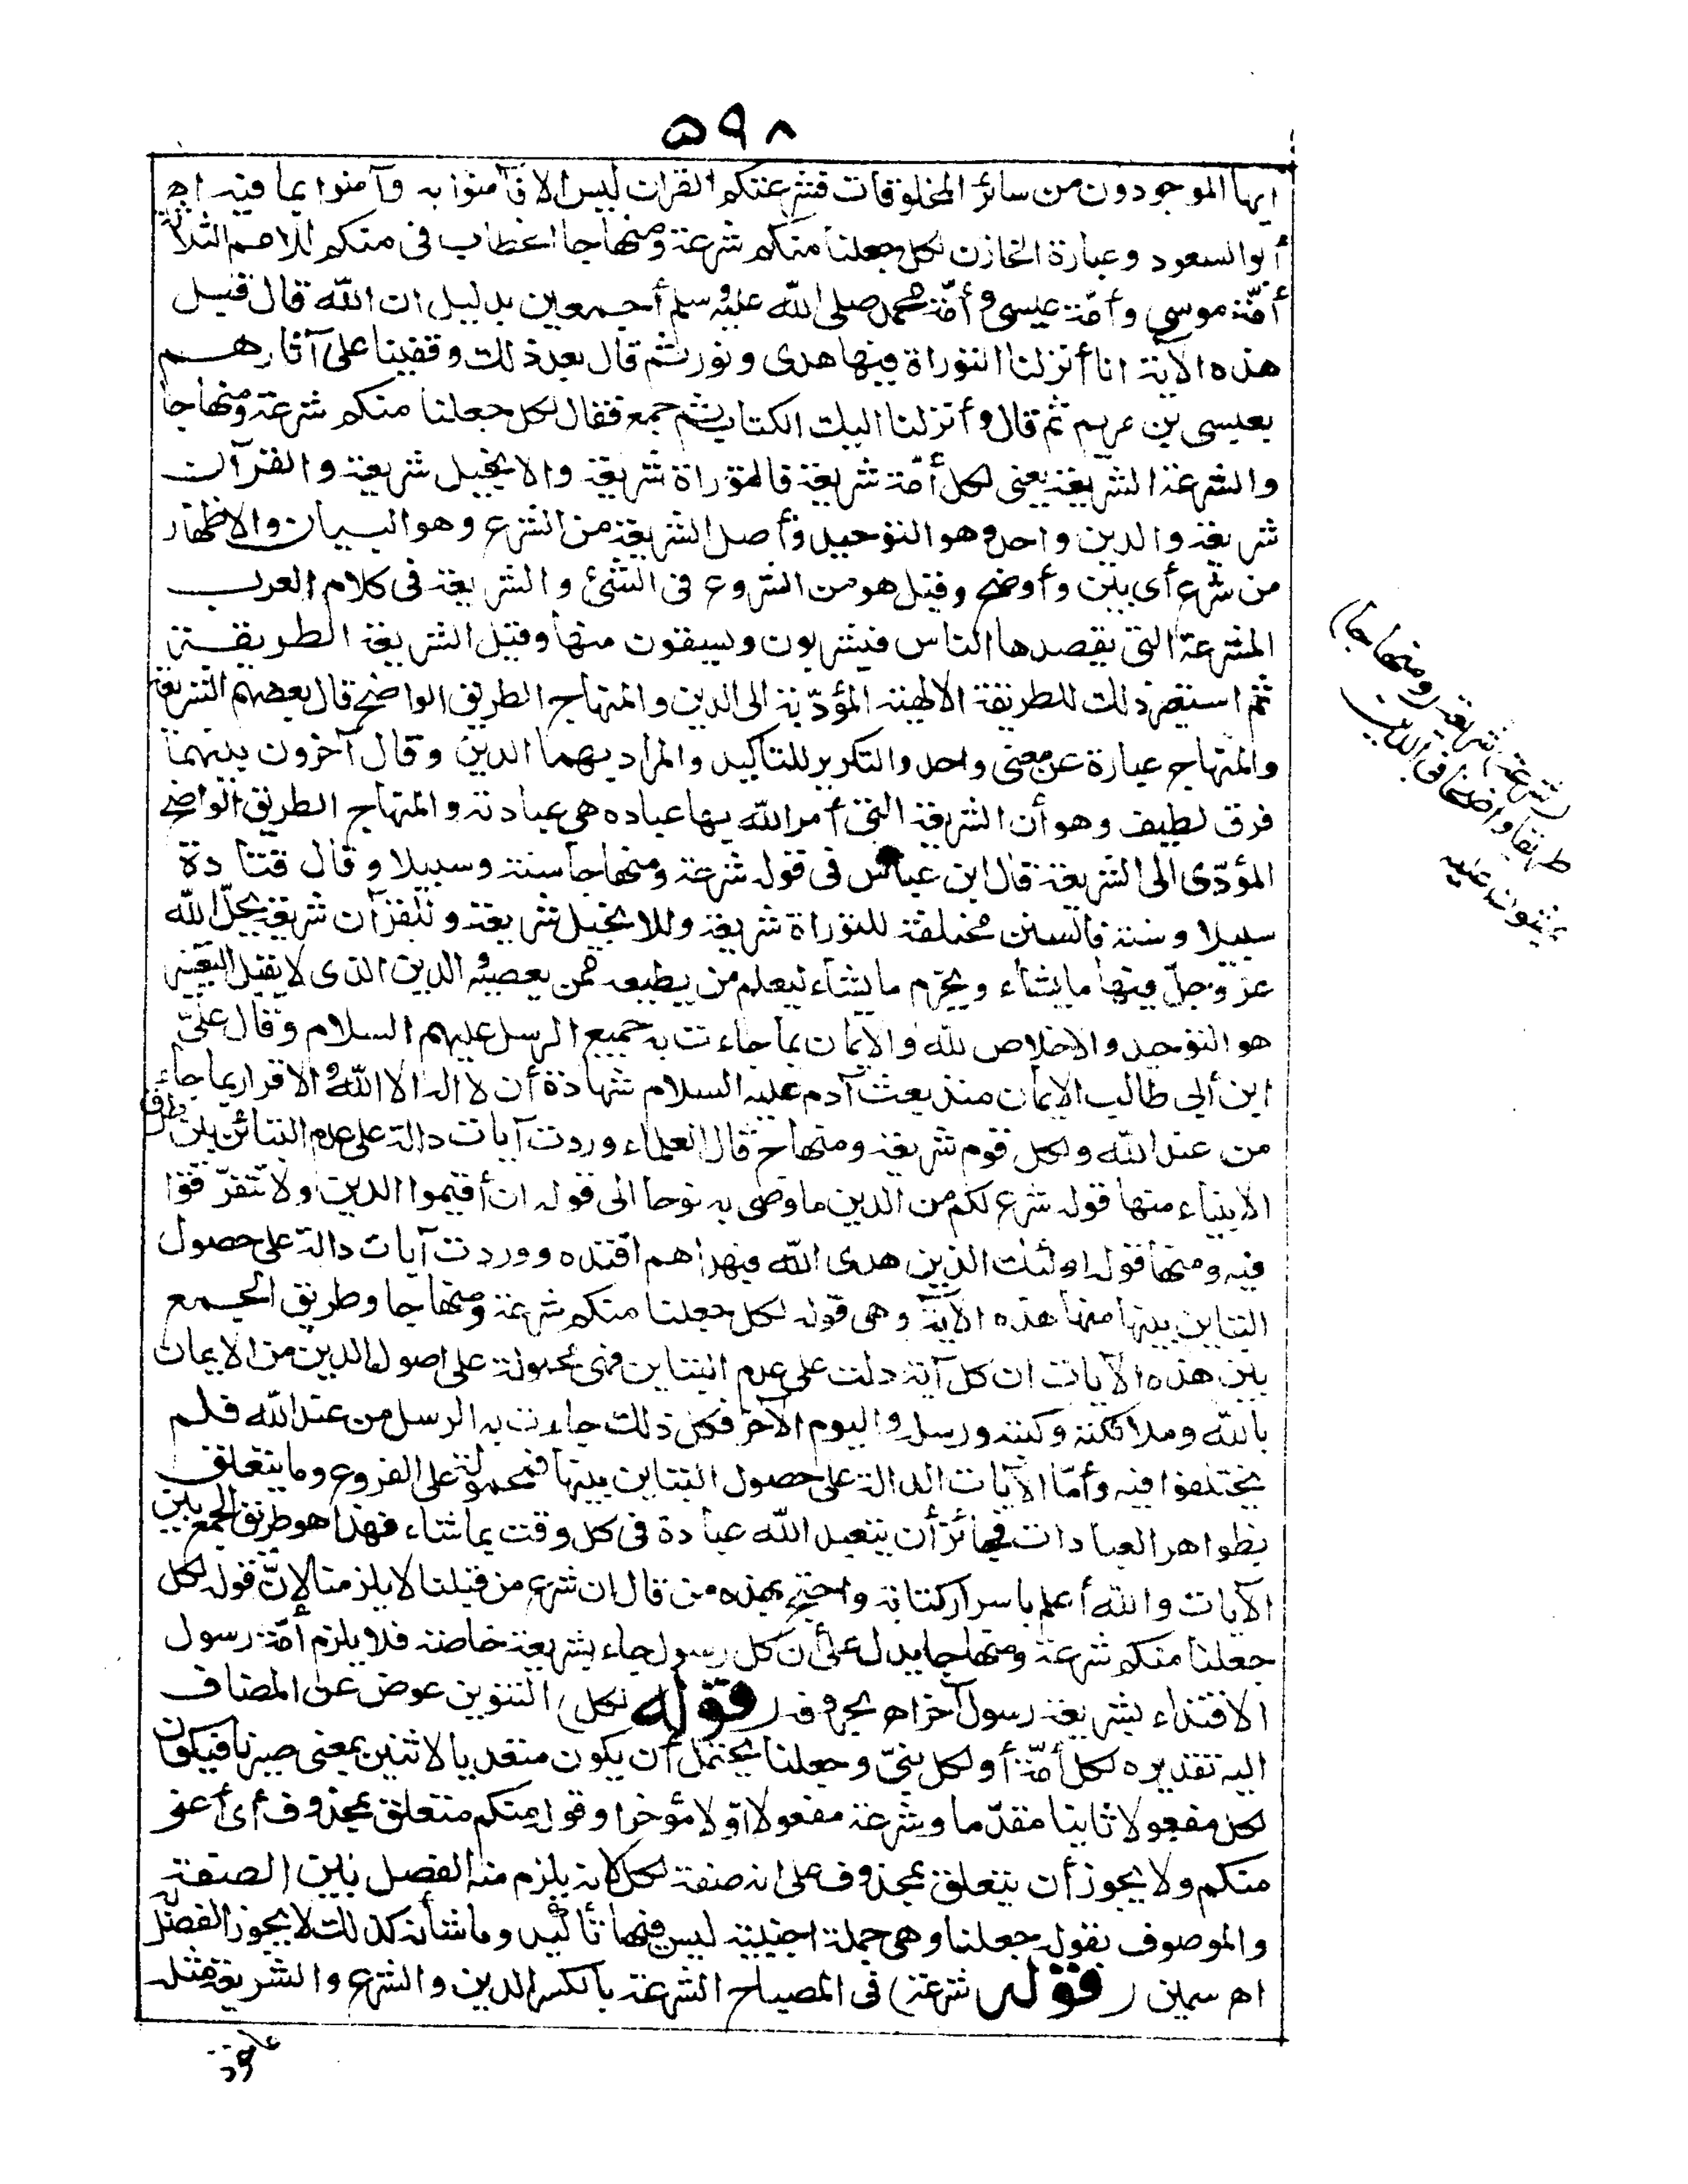 ٥٩٨
ايها الموجودون من سائر المخلوقات فشرعتكم القران ليس الا فآمنوا به وآمنوا بما فيه اه
أبو السعود وعبارة الخازن لكل جعلنا منكم شرعة ومنهاجا الخطاب فى منكم للامم الثلاثة
أمّة موسى وأمّة عيسى وأمّة محمد صلى الله عليه وسلم أجمعين بدليل ان الله قال قبل
هذه الآية انا أنزلنا التوراة فيها هدى ونور ثم قال بعد ذلك وقفينا على آثارهم
بعيسى بن مريم ثم قال وأنزلنا اليك الكتاب ثم جمع فقال لكل جعلنا منكم شرعة ومنهاجا
والشرعة الشريعة يعنى لكل أمّة شريعة فالتوراة شريعة والانجيل شريعة والقرآن
شريعة والدين واحد وهو التوحيد وأصل الشريعة من الشرع وهو البيان والاظهار
من شرع أى بين وأوضح وقيل هو من الشروع فى الشئ والشريعة فى كلام العرب
المشرعة التى يقصدها الناس فيشربون ويسقون منها وقيل الشريعة الطريقة
ثم استعير ذلك للطريقة الالهية المؤدّية الى الدين والمنهاج الطريق الواضح قال بعضهم الشريعة
والمنهاج عبارة عن معنى واحد والتكرير للتاكيد والمراد بهما الدين وقال آخرون بينهما
فرق لطيف وهو أن الشريعة التى أمر الله بها عباده هى عبادته والمنهاج الطريق الواضح
المؤدّى الى الشريعة قال ابن عباس فى قوله شرعة ومنهاجا سنة وسبيلا وقال قتادة
سبيلا وسنة فالسنن مختلفة للتوراة شريعة وللانجيل شريعة وللقرآن شريعة يحلّ الله
عز وجلّ فيها ما يشاء ويحرّم ما يشاء ليعلم من يطيعه ممن يعصيه والدين الذى لا يقبل التغيير
هو التوحيد والاخلاص لله والايمان بما جاءت به جميع الرسل عليهم السلام وقال علىّ
ابن أبى طالب الايمان منذ بعث آدم عليه السلام شهادة أن لا اله الا الله والاقرار بما جاء
من عند الله ولكل قوم شريعة ومنهاج قال العلماء وردت آيات دالة على عدم التباين بين طرق
الانبياء منها قوله شرع لكم من الدين ما وصى به نوحا الى قوله ان أقيموا الدين ولا تتفرّقوا
فيه ومنها قوله اولئك الذين هدى الله فبهداهم اقتده ووردت آيات دالة على حصول
التباين بينها منها هذه الآية وهى قوله لكل جعلنا منكم شرعة ومنهاجا وطريق الجمع
بين هذه الآيات ان كل آية دلت على عدم التباين فهى محمولة على اصول الدين من الايمان
بالله وملائكته وكتبه ورسله واليوم الآخر فكل ذلك جاءت به الرسل من عند الله فلم
يختلفوا فيه وأمّا الآيات الدالة على حصول التباين بينها فمحمولة على الفروع وما يتعلق
بظواهر العبادات فجائز أن يتعبد الله عباده فى كل وقت بما شاء فهذا هو طريق الجمع بين
الآيات والله أعلم باسرار كتابه واحتج بهذه من قال ان شرع من قبلنا لا يلزمنا لانّ قوله لكل
جعلنا منكم شرعة ومنهاجا يدل على أن كل رسول جاء بشريعة خاصة فلا يلزم أمّة رسول
الاقتداء بشريعة رسول آخر اه بحروفه (قوله لكل) التنوين عوض عن المضاف
اليه تقديره لكل أمّة أو لكل نبىّ وجعلنا يحتمل أن يكون متعديا لاثنين بمعنى صيرنا فيكون
لكل مفعولا ثانيا مقدّما وشرعة مفعولا اوّلا مؤخرا وقوله منكم متعلق بمحذوف أى أعنى
منكم ولا يجوز أن يتعلق بمحذوف على انه صفة لكل لانه يلزم منه الفصل بين الصفة
والموصوف بقوله جعلنا وهى جملة اجنبية ليس فيها تأكيد وما شأنه كذلك لا يجوز الفصل به
اه سمين (قوله شرعة) فى المصباح الشرعة بالكسر الدين والشرع والشريعة مثله
(شرعة) شريعة (ومنهاجا)
طريقا واضحا فى الدين
يمشون عليه